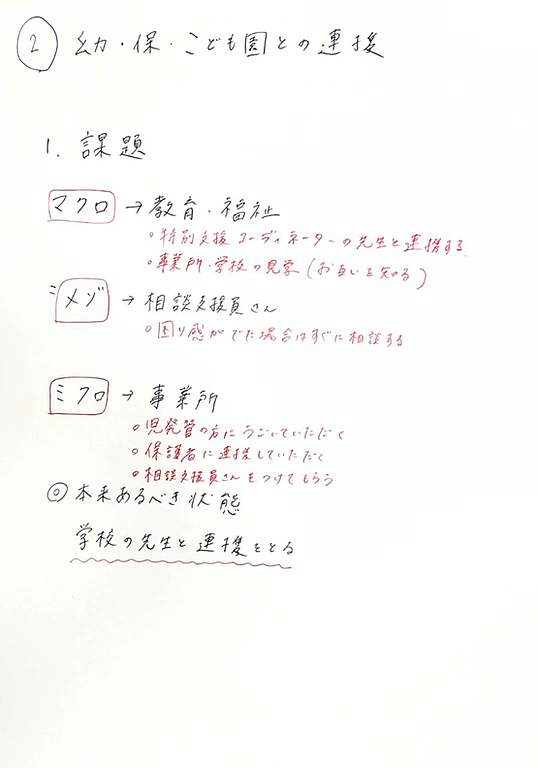 ② 幼・保・こども園との連携
1. 課題
マクロ → 教育・福祉
○特別支援コーディネーターの先生と連携する
○事業所・学校の見学(お互いを知る)
メゾ → 相談支援員さん
○困り感がでた場合はすぐに相談する
ミクロ → 事業所
○児発管の方にうごいていただく
○保護者に連携していただく
○相談支援員さんをつけてもらう
◎本来あるべき状態
学校の先生と連携をとる